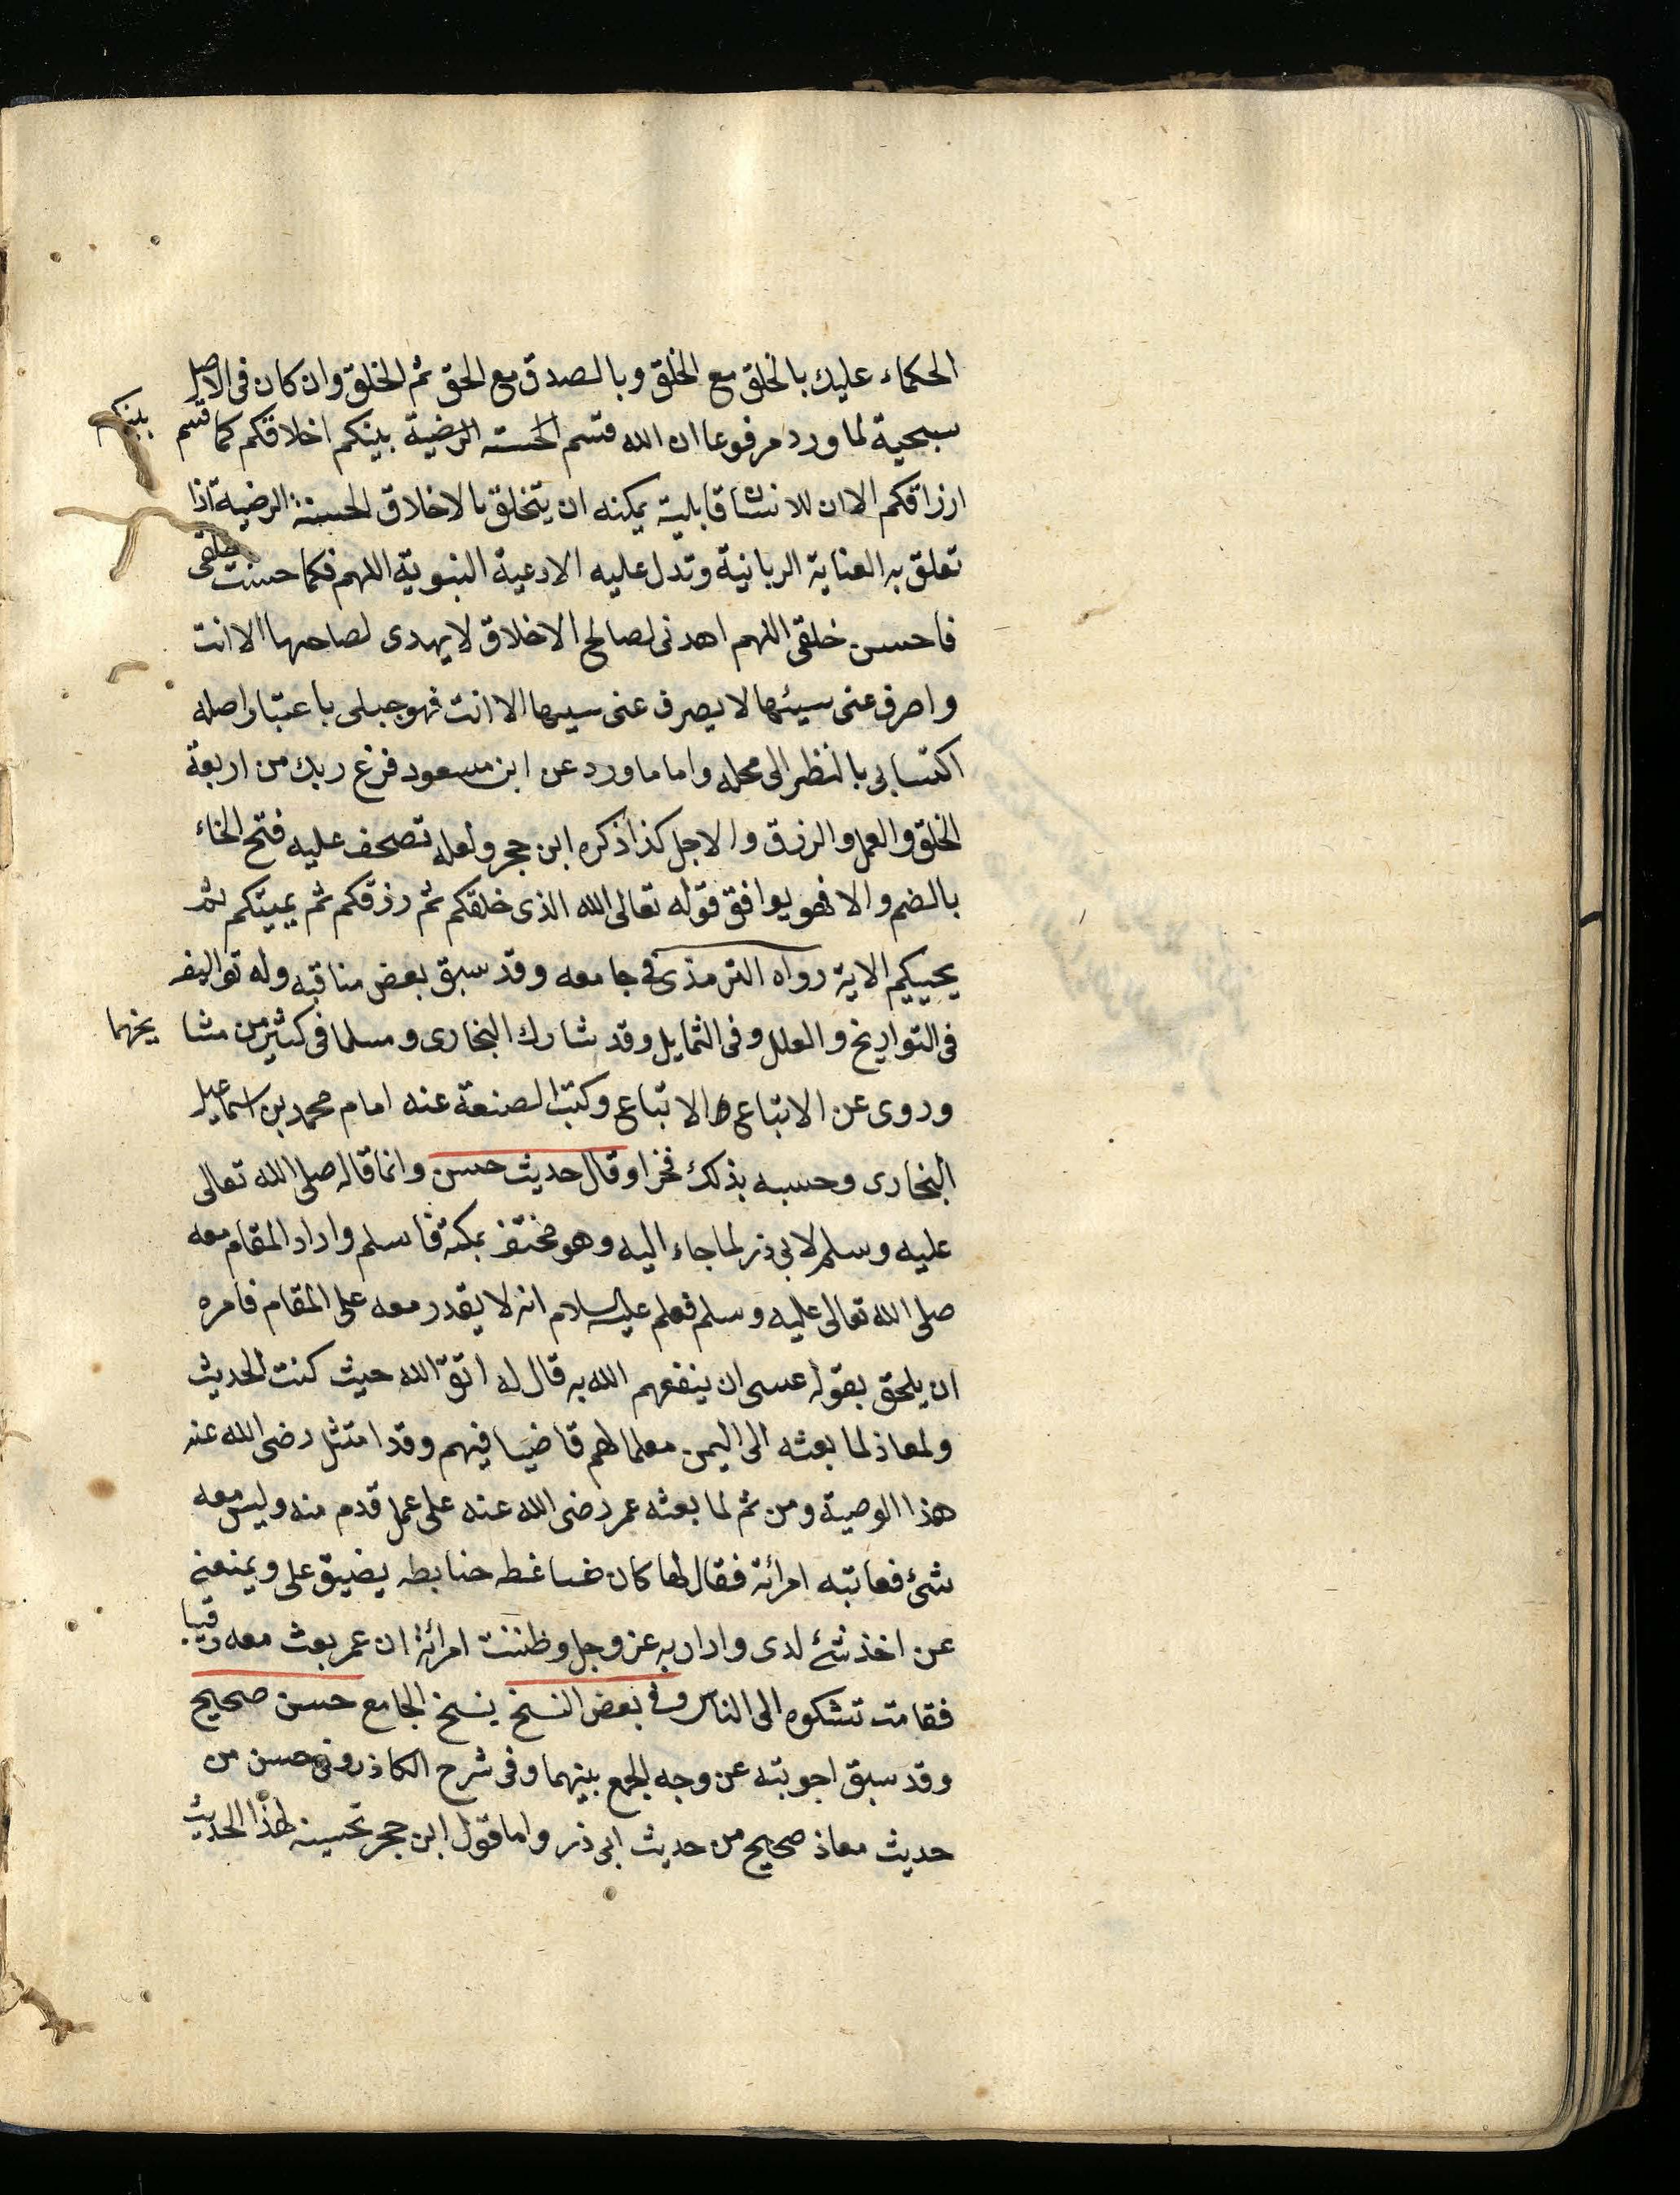 الحكماء عليك بالخلق مع الخلق وبالصدق مع الحق ثم الخلق وان كان فى الاصل
سبحية لما ورد مرفوعا ان الله قسم الحسنه الرضية بينكم اخلاقكم كما قسم بينكم
ارزاقكم الا ان للانسان قابلية يمكنه ان يتخلق بالاخلاق الحسنة الرضية اذا
تعلق به العناية الربانية وتدل عليه الادعية النبوية اللهم فكما حسنت خلقى
فاحسن خلقى اللهم اهدنى لصالح الاخلاق لا يهدى لصاحها الا انت
واصرف عنى سيئها لا يصرف عنى سيها الا انت فهو جبلى باعتبار اصله
اكتسابى بالنظر الى محله واما ما ورد عن ابن مسعود فرغ ربك من اربعة
الخلق والعمل والرزق والاجل كذا ذكره ابن حجر ولعله تصحف عليه فتح الخاء
بالضم والا فهو يوافق قوله تعالى الله الذى خلقكم ثم رزقكم ثم يميتكم ثم
يحييكم الاية رواه الترمذى فى جامعه وقد سبق بعض مناقبه وله تواليف
فى التواريخ والعلل وفى الثمايل وقد شارك البخارى ومسلما فى كثير من مشا يخهما
وروى عن الاتباع الاتباع وكتب الصنعة عنه امام محمد بن اسماعيل
البخارى وحسبه بذلك فخرا وقال حديث حسن وانما قاله صلى الله تعالى
عليه وسلم لابى ذر لما جاء اليه وهو مختف بمكة فاسلم واراد المقام معه
صلى الله تعالى عليه وسلم فعلم عليه السلام انه لا يقدر معه على المقام فامره
ان يلحق بقوله عسى ان ينفعهم الله به قال له اتق الله حيث كنت الحديث
ولمعاذ لما بعثه الى اليمن معلما لهم قاضيا فيهم وقد امتثل رضى الله عنه
هذا الوصية ومن ثم لما بعثه عمر رضى الله عنه على عمل قدم منه وليس معه
شئ فعاتبه امرأته فقال لها كان ضاغطه ضابطه يضيق على ويمنعنى
عن اخذ شئ لدى واراد به عز وجل وظننت امرأته ان عمر بعث معه رقيبا
فقامت تشكوه الى الناس وفى بعض النسخ ينسخ الجامع حسن صحيح
وقد سبق اجوبته عن وجه الجمع بينهما وفى شرح الكاذرونى حسن من
حديث معاذ صحيح من حديث ابى ذر واما قول ابن حجر تحسينه لهذا الحديث